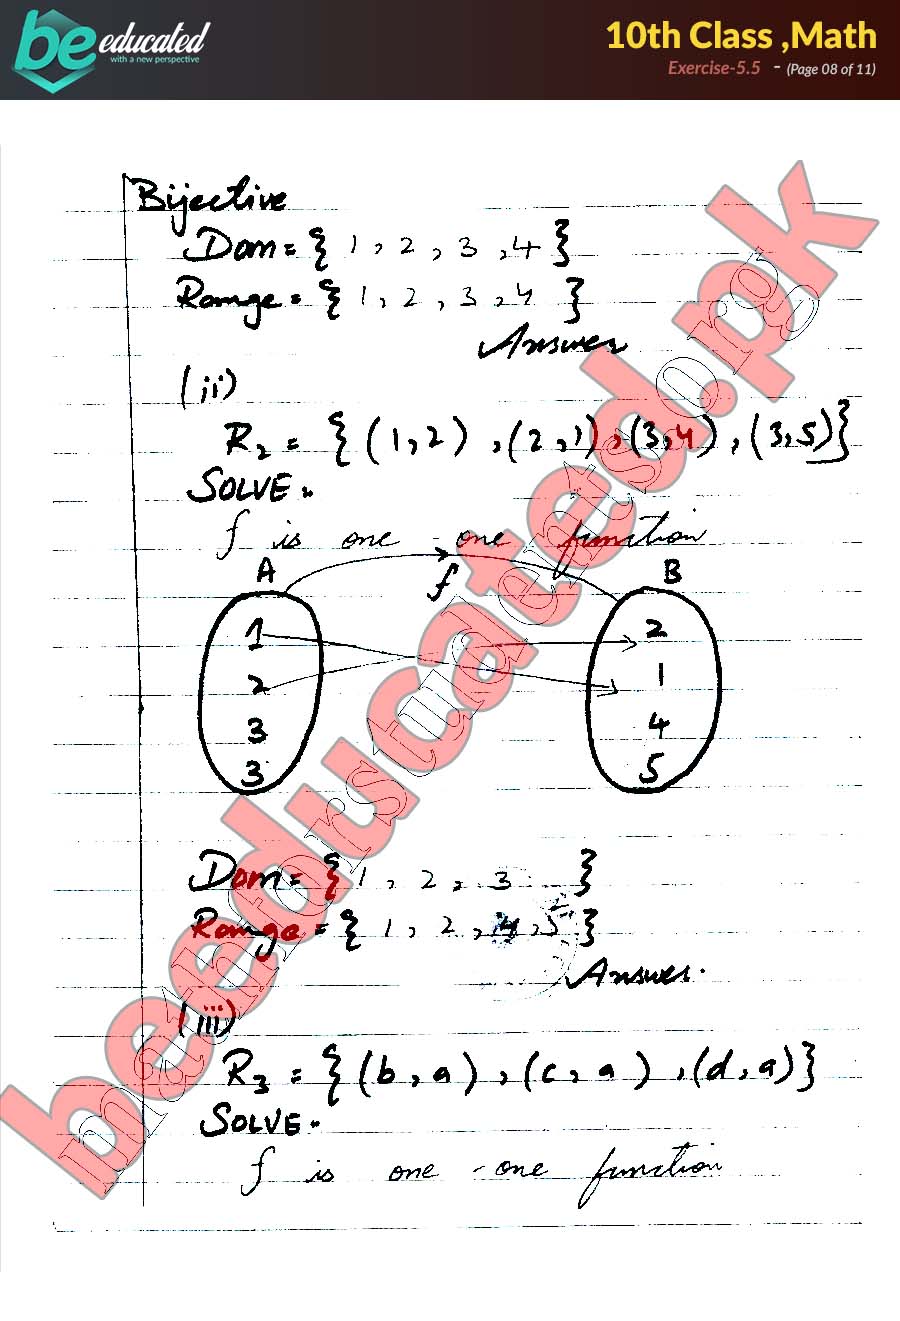 be educated
with a new perspective
10th Class ,Math
Exercise-5.5 - (Page 08 of 11)
Bijective
Dom = { 1 , 2 , 3 , 4 }
Range = { 1 , 2 , 3 , 4 }
Answer
(ii)
R2 = { (1,2) , (2,1) , (3,4) , (3,5) }
SOLVE.
f is one - one function
A f B
1 2
2 1
3 4
3 5
Dom = { 1 , 2 , 3 }
Range = { 1 , 2 , 4 , 5 }
Answer.
(iii)
R3 = { (b,a) , (c,a) , (d,a) }
SOLVE.
f is one - one function
beeducated.pk